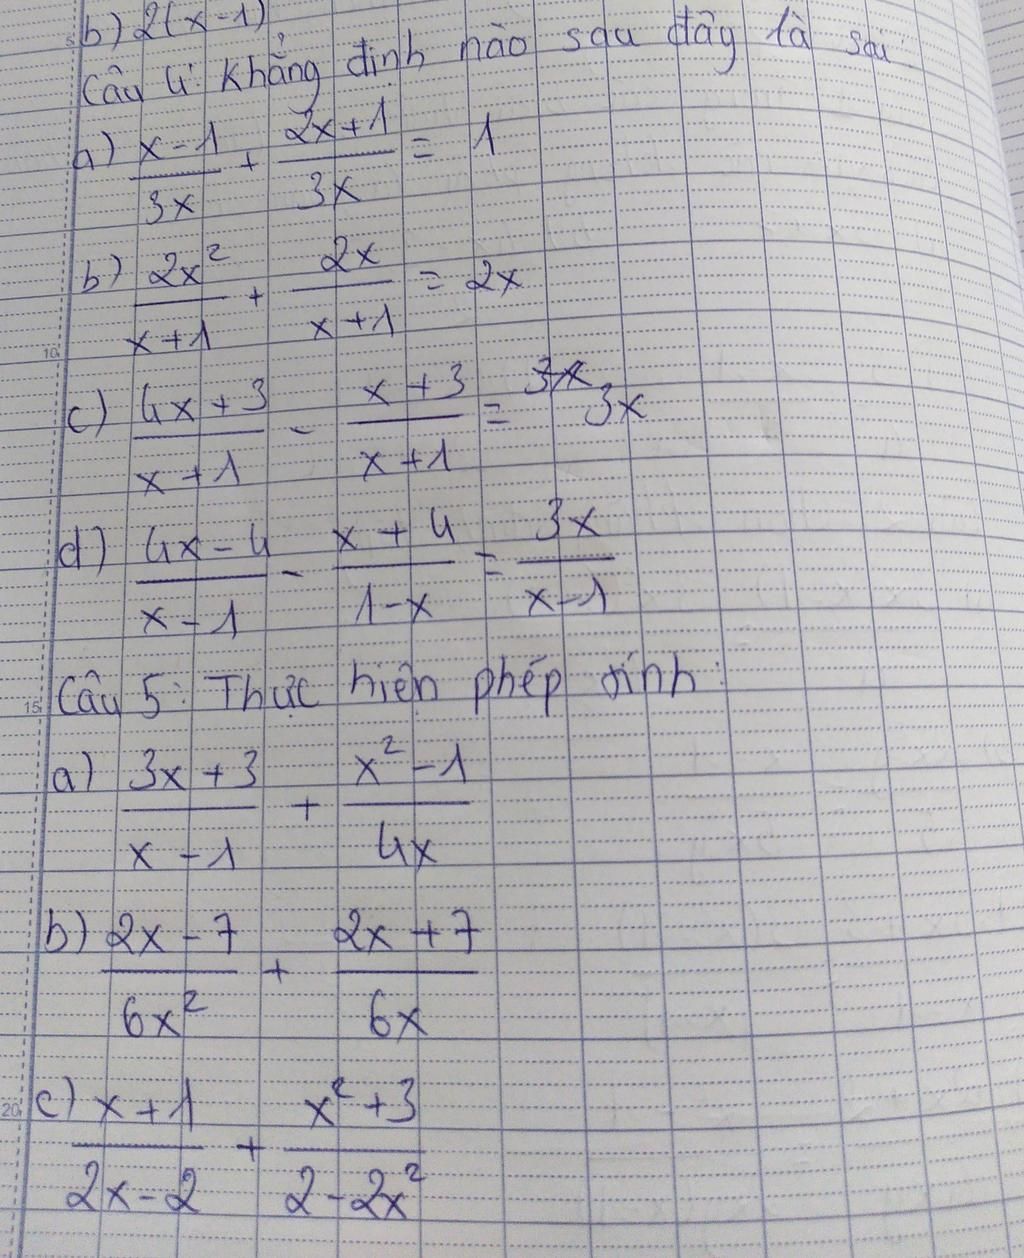 b) 2(x-1)
Câu 4: Khẳng định nào sau đây là sai
a) (x-1)/(3x) + (2x+1)/(3x) = 1
b) (2x²)/(x+1) + (2x)/(x+1) = 2x
c) (4x+3)/(x+1) - (x+3)/(x+1) = 3x
d) (4x-4)/(x-1) - (x+4)/(1-x) = (3x)/(x-1)
Câu 5: Thực hiện phép tính:
a) (3x+3)/(x-1) + (x²-1)/(4x)
b) (2x-7)/(6x²) + (2x+7)/(6x)
c) (x+1)/(2x-2) + (x²+3)/(2-2x²)
10
15
20